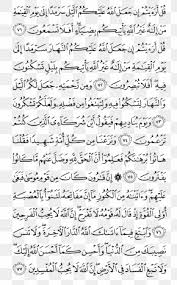 قُلْ أَرَءَيْتُمْ إِن جَعَلَ ٱللَّهُ عَلَيْكُمُ ٱلَّيْلَ سَرْمَدًا إِلَىٰ يَوْمِ ٱلْقِيَٰمَةِ
مَنْ إِلَٰهٌ غَيْرُ ٱللَّهِ يَأْتِيكُم بِضِيَآءٍ أَفَلَا تَسْمَعُونَ ٧١
قُلْ أَرَءَيْتُمْ إِن جَعَلَ ٱللَّهُ عَلَيْكُمُ ٱلنَّهَارَ سَرْمَدًا إِلَىٰ يَوْمِ
ٱلْقِيَٰمَةِ مَنْ إِلَٰهٌ غَيْرُ ٱللَّهِ يَأْتِيكُم بِلَيْلٍ تَسْكُنُونَ
فِيهِ أَفَلَا تُبْصِرُونَ ٧٢ وَمِن رَّحْمَتِهِۦ جَعَلَ لَكُمُ ٱلَّيْلَ
وَٱلنَّهَارَ لِتَسْكُنُوا۟ فِيهِ وَلِتَبْتَغُوا۟ مِن فَضْلِهِۦ وَلَعَلَّكُمْ تَشْكُرُونَ
٧٣ وَيَوْمَ يُنَادِيهِمْ فَيَقُولُ أَيْنَ شُرَكَآءِىَ ٱلَّذِينَ كُنتُمْ
تَزْعُمُونَ ٧٤ وَنَزَعْنَا مِن كُلِّ أُمَّةٍ شَهِيدًا فَقُلْنَا
هَاتُوا۟ بُرْهَٰنَكُمْ فَعَلِمُوٓا۟ أَنَّ ٱلْحَقَّ لِلَّهِ وَضَلَّ عَنْهُم مَّا كَانُوا۟
يَفْتَرُونَ ٧٥ ۞ إِنَّ قَٰرُونَ كَانَ مِن قَوْمِ مُوسَىٰ فَبَغَىٰ
عَلَيْهِمْ وَءَاتَيْنَٰهُ مِنَ ٱلْكُنُوزِ مَآ إِنَّ مَفَاتِحَهُۥ لَتَنُوٓأُ بِٱلْعُصْبَةِ
أُو۟لِى ٱلْقُوَّةِ إِذْ قَالَ لَهُۥ قَوْمُهُۥ لَا تَفْرَحْ إِنَّ ٱللَّهَ لَا يُحِبُّ ٱلْفَرِحِينَ
٧٦ وَٱبْتَغِ فِيمَآ ءَاتَىٰكَ ٱللَّهُ ٱلدَّارَ ٱلْءَاخِرَةَ وَلَا تَنسَ
نَصِيبَكَ مِنَ ٱلدُّنْيَا وَأَحْسِن كَمَآ أَحْسَنَ ٱللَّهُ إِلَيْكَ
وَلَا تَبْغِ ٱلْفَسَادَ فِى ٱلْأَرْضِ إِنَّ ٱللَّهَ لَا يُحِبُّ ٱلْمُفْسِدِينَ ٧٧